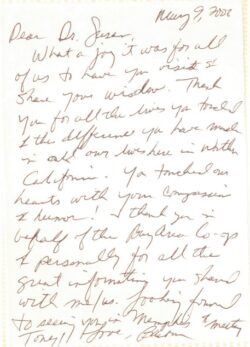 May 9, 200
Dear Dr. Susan,
What a joy it was for all
of us to have you visit &
share your wisdom. Thank
you for all the lives you touched
& the difference you have made
in all our lives here in
California. You touched our
hearts with your compassion
& humor! I thank you in
behalf of the Bay Area Co-ops
& personally for all the
great information you shared
with me/us. Looking forward
to seeing you in Memphis & meeting
Tony!! Love